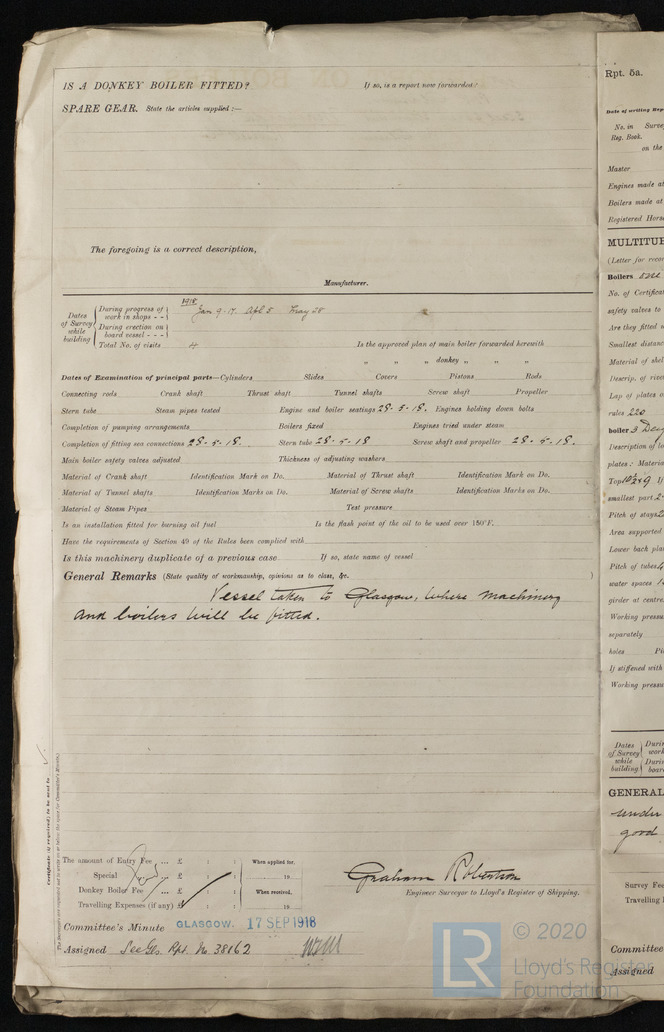 IS A DONKEY BOILER FITTED? If so, is a report now forwarded?
SPARE GEAR. State the articles supplied :—
The foregoing is a correct description,
Manufacturer.
1918
Dates of Survey while building
During progress of work in shops - - Jan 9. 17. Apl 5 May 28
During erection on board vessel - - -
Total No. of visits 4 Is the approved plan of main boiler forwarded herewith
" " " donkey " " "
Dates of Examination of principal parts—Cylinders Slides Covers Pistons Rods
Connecting rods Crank shaft Thrust shaft Tunnel shafts Screw shaft Propeller
Stern tube Steam pipes tested Engine and boiler seatings 28-5-18. Engines holding down bolts
Completion of pumping arrangements Boilers fixed Engines tried under steam
Completion of fitting sea connections 28-5-18. Stern tube 28-5-18 Screw shaft and propeller 28-5-18.
Main boiler safety valves adjusted Thickness of adjusting washers
Material of Crank shaft Identification Mark on Do. Material of Thrust shaft Identification Mark on Do.
Material of Tunnel shafts Identification Marks on Do. Material of Screw shafts Identification Marks on Do.
Material of Steam Pipes Test pressure
Is an installation fitted for burning oil fuel Is the flash point of the oil to be used over 150°F.
Have the requirements of Section 49 of the Rules been complied with
Is this machinery duplicate of a previous case If so, state name of vessel
General Remarks (State quality of workmanship, opinions as to class, &c. )
Vessel taken to Glasgow, where machinery
and boilers will be fitted.
Certificate (if required) to be sent to
The amount of Entry Fee ... £ : : When applied for,
Special ... £ : : 19
Donkey Boiler Fee ... £ : : When received,
Travelling Expenses (if any) £ : : 19
Graham Robertson
Engineer Surveyor to Lloyd's Register of Shipping.
Committee's Minute GLASGOW. 17 SEP 1918
Assigned See Gls. Rpt. No 38162
Rpt. 5a.
Date of writing Rep
No. in Surve
Reg. Book.
on the
Master
Engines made at
Boilers made at
Registered Hors
MULTITU
(Letter for recor
Boilers one
No. of Certifica
safety valves to
Are they fitted
Smallest distan
Material of shel
Descrip. of rive
Lap of plates o
rules 220
boiler
Description of lo
plates : Materia
Top
smallest part
Pitch of stays
Area supported
Lower back pla
Pitch of tubes
water spaces
girder at centre
Working pressu
separately
holes Pi
If stiffened with
Working pressu
Dates of Survey while building
Durin
work
Duri
board
GENERAL
under
good
Survey Fee
Travelling
Committee
Assigned
LR © 2020
Lloyd's Register
Foundation